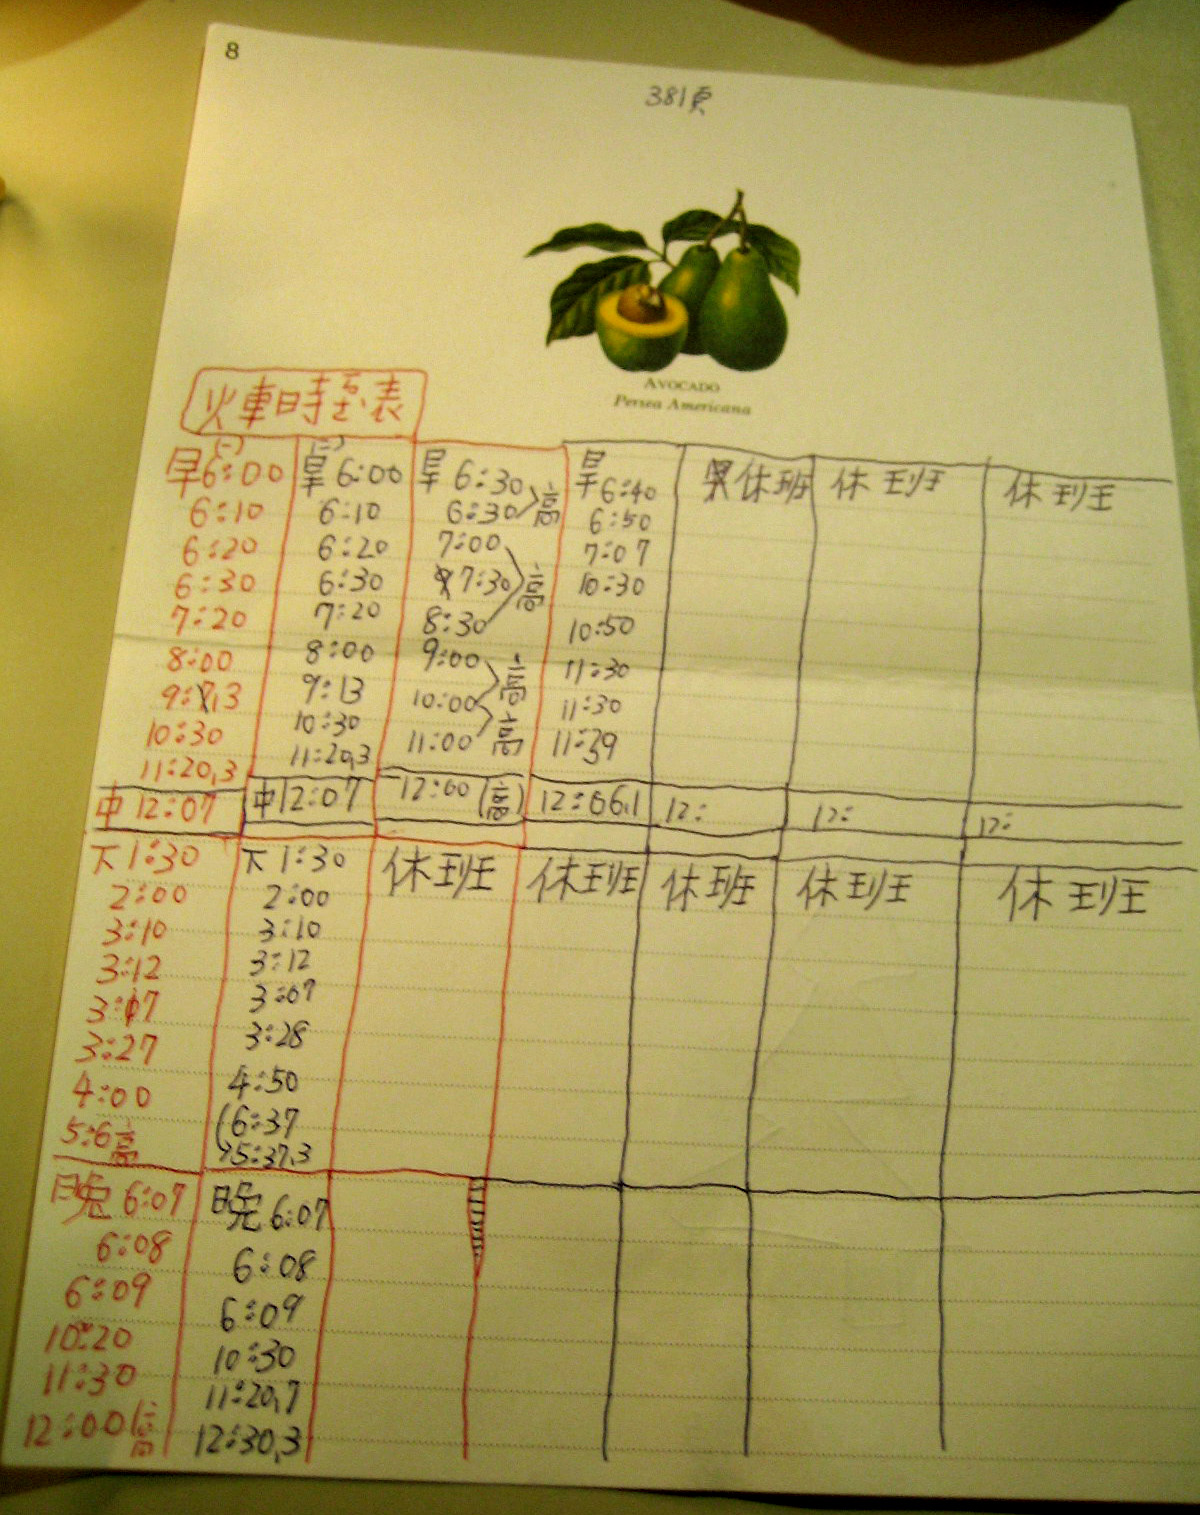 8
381頁
AVOCADO
Persea Americana
火車時至表
(一) (二)
早6:00 早6:00 早6:30 早6:40 休班 休班 休班
6:10 6:10 6:30 高 6:50
6:20 6:20 7:00 7:07
6:30 6:30 7:30 高 10:30
7:20 7:20 8:30 10:50
8:00 8:00 9:00 高 11:30
9:13 9:13 10:00 11:30
10:30 10:30 11:00 高 11:39
11:20,3 11:20,3
中12:07 中12:07 12:00(高) 12:06,1 12: 12: 12:
下1:30 下1:30 休班 休班 休班 休班 休班
2:00 2:00
3:10 3:10
3:12 3:12
3:07 3:07
3:27 3:28
4:00 4:50
5:6高 6:37
5:37,3
晚6:07 晚6:07
6:08 6:08
6:09 6:09
10:20 10:30
11:30 11:20,7
12:00(高 12:30,3